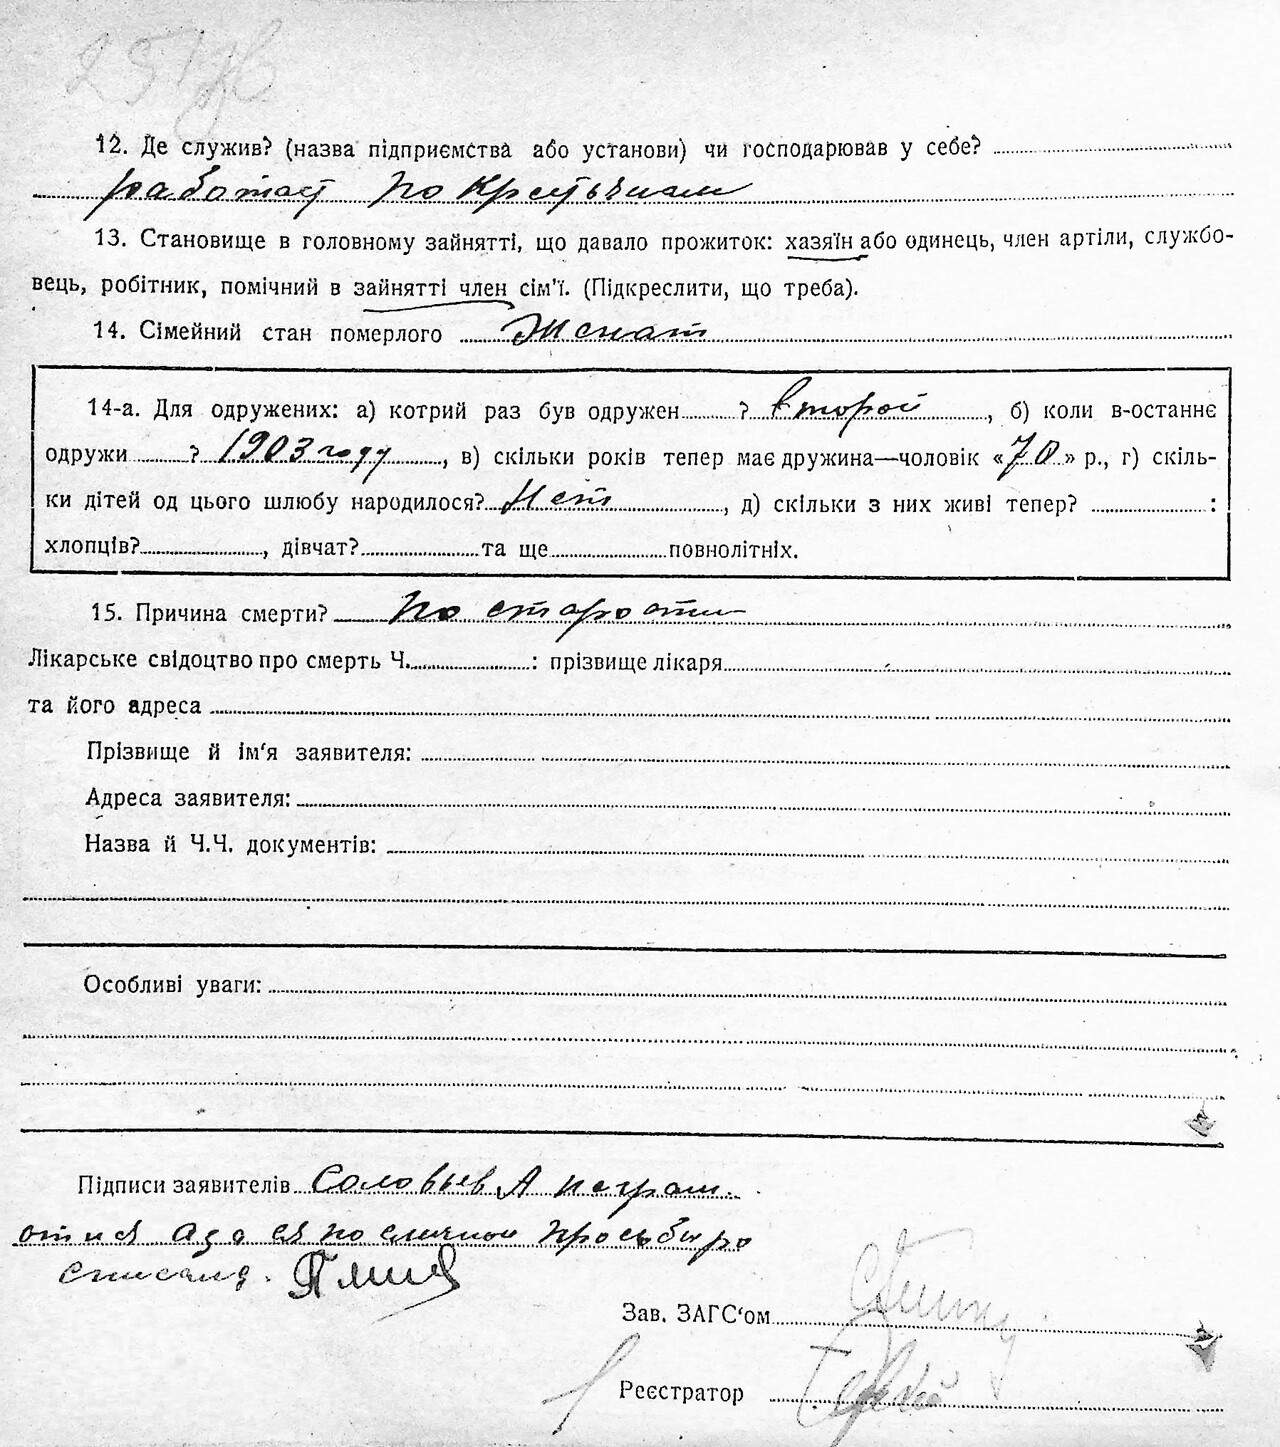 12. Де служив? (назва підприємства або установи) чи господарював у себе?
работает по Крестьянам
13. Становище в головному зайнятті, що давало прожиток: хазяїн або одинець, член артіли, службо-
вець, робітник, помічний в зайнятті член сім'ї. (Підкреслити, що треба).
14. Сімейний стан померлого Женат
14-а. Для одружених: а) котрий раз був одружен ? второй, б) коли в-останнє
одружи ? 1903 году, в) скільки років тепер має дружина—чоловік «70» р., г) скіль-
ки дітей од цього шлюбу народилося? Нет, д) скільки з них живі тепер? :
хлопців?, дівчат? та ще повнолітніх.
15. Причина смерти? по старости
Лікарське свідоцтво про смерть Ч. : прізвище лікаря
та його адреса
Прізвище й ім'я заявителя:
Адреса заявителя:
Назва й Ч.Ч. документів:
Особливі уваги:
Підписи заявителів Соловьев А неграм.
просьбы
Зав. ЗАГС'ом
Реєстратор